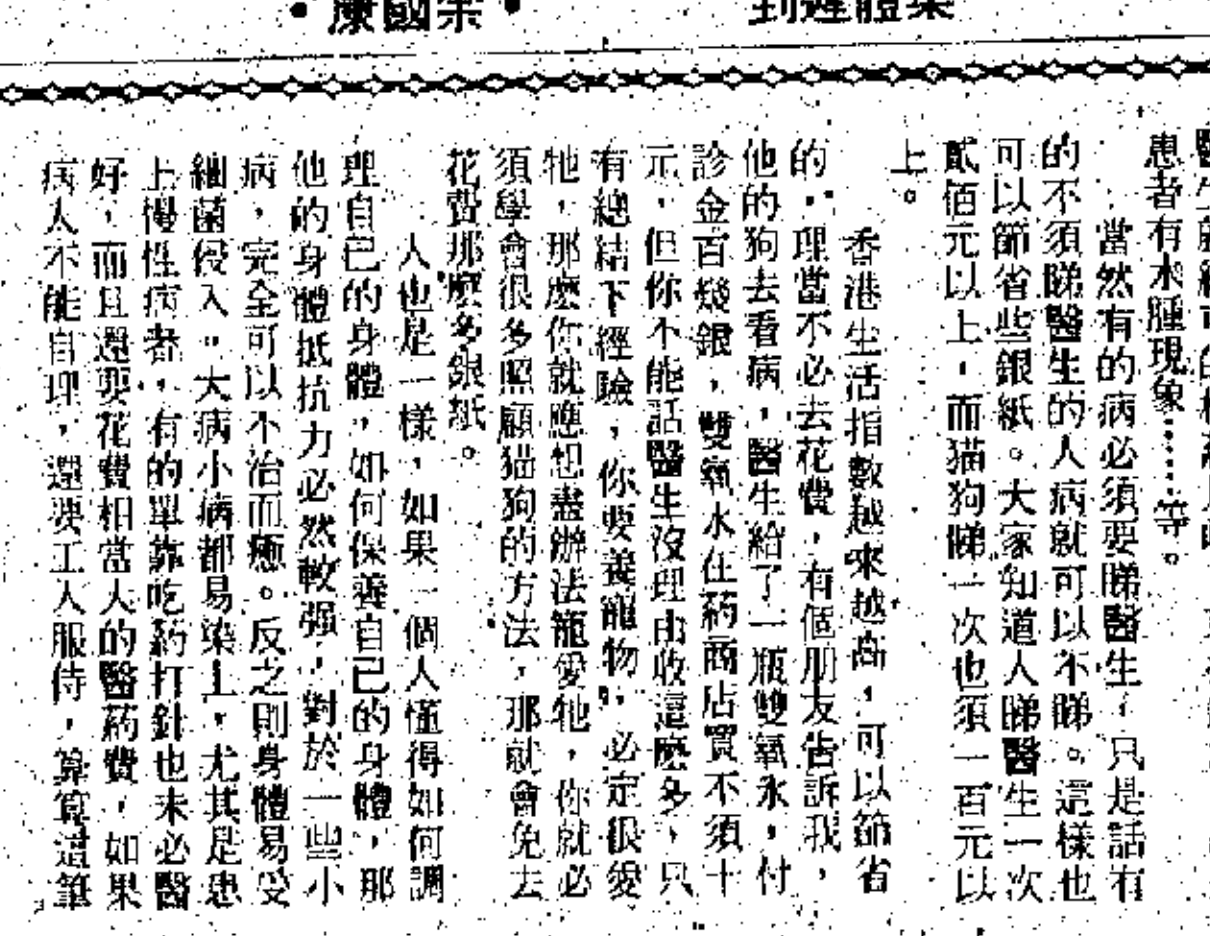 到遲體集
•康國宗•
患者有水腫現象……等。
當然有的病必須要睇醫生，只是話有
的不須睇醫生的人病就可以不睇。這樣也
可以節省些銀紙。大家知道人睇醫生一次
貳佰元以上，而猫狗睇一次也須一百元以
上。
香港生活指數越來越高，可以節省
的，理當不必去花費，有個朋友告訴我，
他的狗去看病，醫生給了一瓶雙氧水，付
診金百幾銀，雙氧水在葯商店買不須十
元，但你不能話醫生沒理由收這麽多，只
有總結下經驗，你要養寵物，必定很愛
牠，那麽你就應想盡辦法寵愛牠，你就必
須學會很多照顧猫狗的方法，那就會免去
花費那麽多銀紙。
人也是一樣，如果一個人懂得如何調
理自己的身體，如何保養自己的身體，那
他的身體抵抗力必然較强，對於一些小
病，完全可以不治而癒。反之則身體易受
細菌侵入。大病小病都易染上，尤其是患
上慢性病者，有的單靠吃葯打針也未必醫
好，而且還要花費相當大的醫葯費，如果
病人不能自理，還要工人服侍，算算這筆